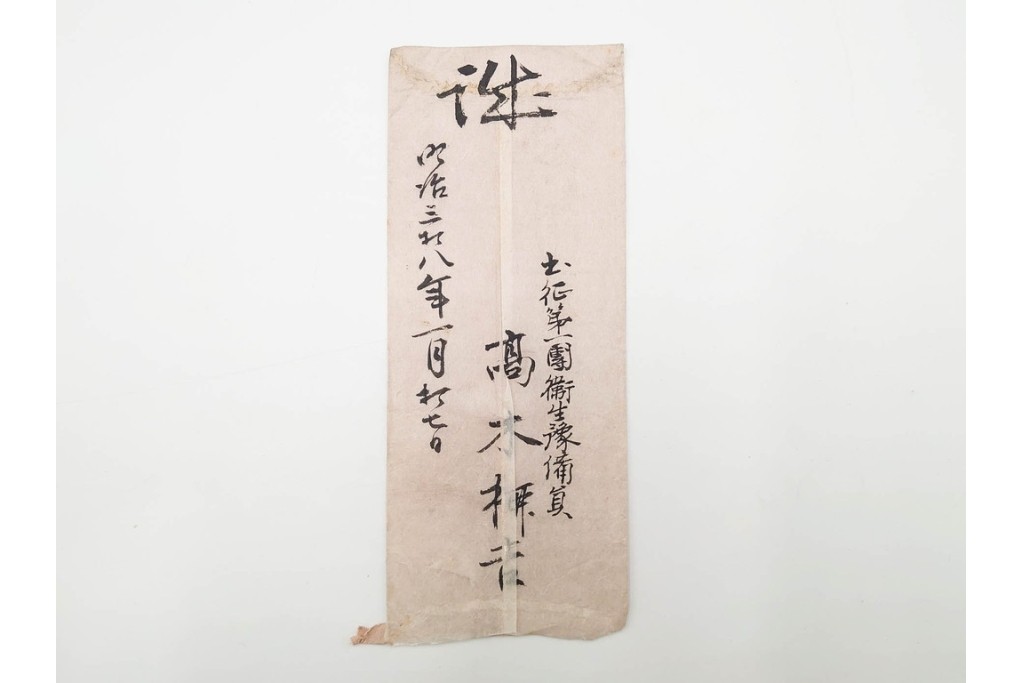 出征第一團衛生豫備員
高木吉
明治三拾八年一月拾七日